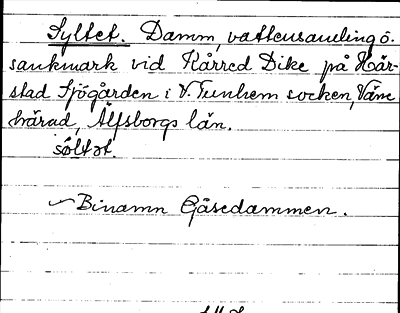 Syltet. Damm, vattensamling o.
sankmark vid Kårred Dike på Hår-
stad Sjögården i V. Tunhem socken, Väne
härad, Älfsborgs län.
sôltət.
Binamn Gåsedammen.